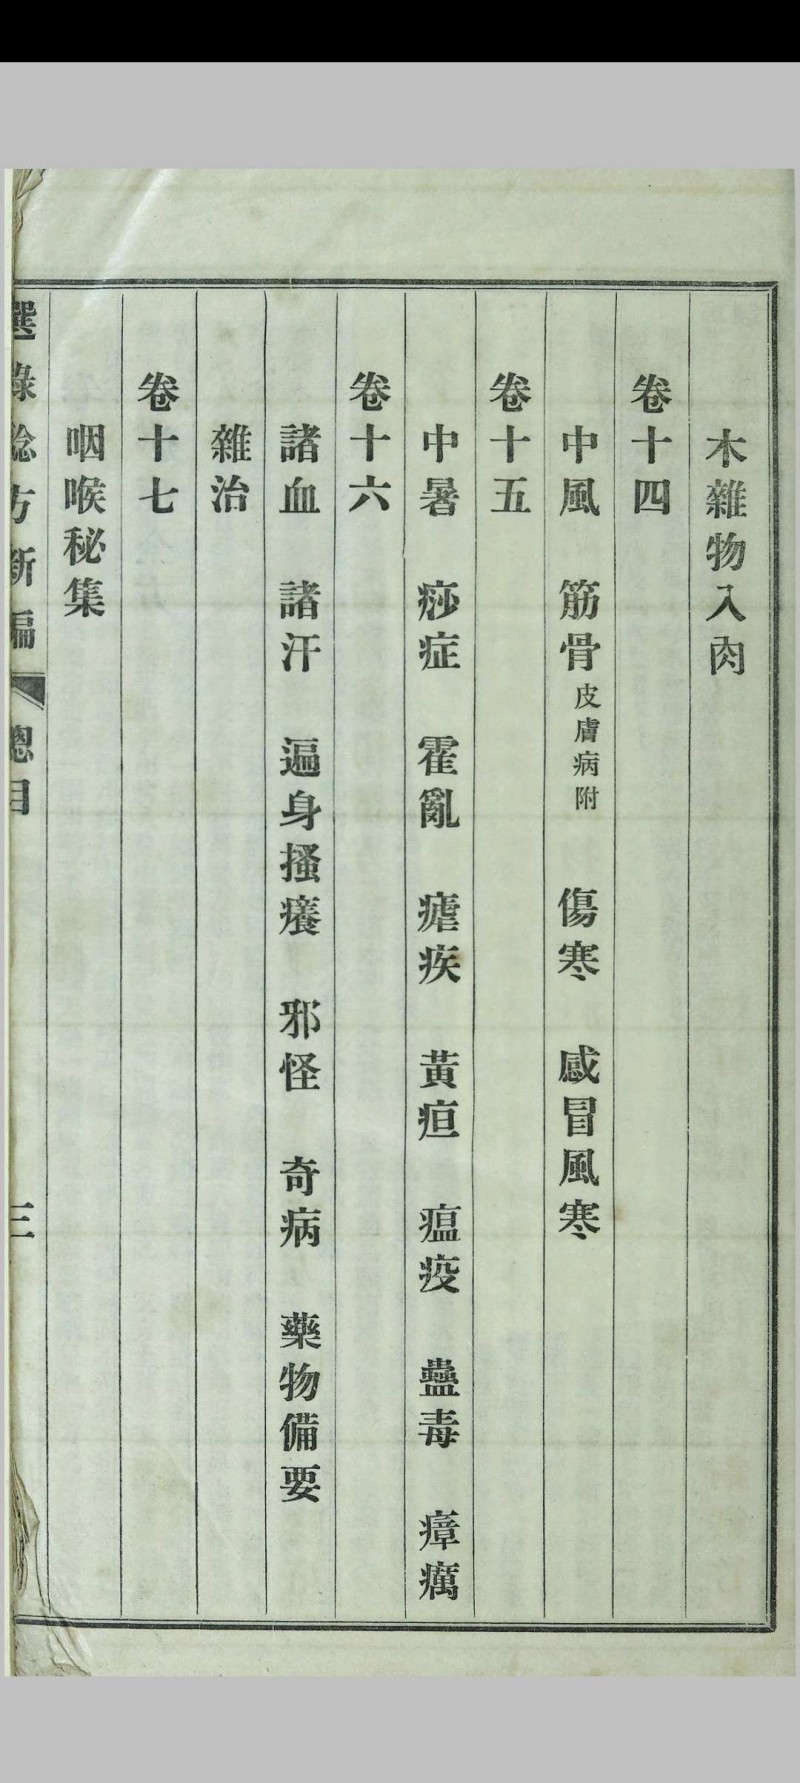 木雜物入肉
卷十四
中風　筋骨皮膚病附　傷寒　感冒風寒
卷十五
中暑　痧症　霍亂　瘧疾　黃疸　瘟疫　蠱毒　瘴癘
卷十六
諸血　諸汗　遍身搔癢　邪怪　奇病　藥物備要
雜治
卷十七
咽喉秘集
選錄驗方新編　總目　三